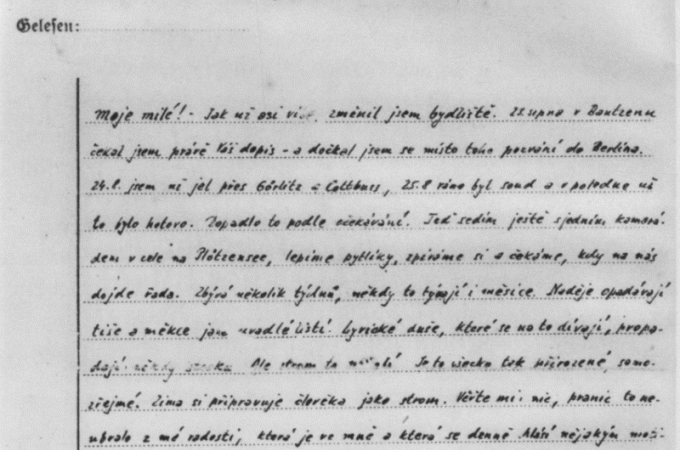 Gelesen:
Moje milé! - Jak už asi víte, změnil jsem bydliště. 23. srpna v Bautzenu
čekal jsem právě Váš dopis - a dočkal jsem se místo toho pozvání do Berlína.
24.8. jsem už jel přes Görlitz a Cottbuss, 25.8 ráno byl soud a v poledne už
to bylo hotovo. Dopadlo to podle očekávání. Teď sedím ještě s jedním kamará-
dem v cele na Plötzensee, lepíme pytlíky, zpíváme si a čekáme, kdy na nás
dojde řada. Zbývá několik týdnů, někdy to trvají i měsíce. Naděje opadávají
tiše a měkce jako uvadlé listí. Lyrické duše, které se na to dívají, propa-
dají někdy Ale strom to Je to všecko tak přirozené, samo-
zřejmé. Zima si připravuje člověka jako strom. Věřte mi: nic, pranic to ne-
ubralo z mé radosti, která je ve mně a která se denně hlásí nějakým moti-